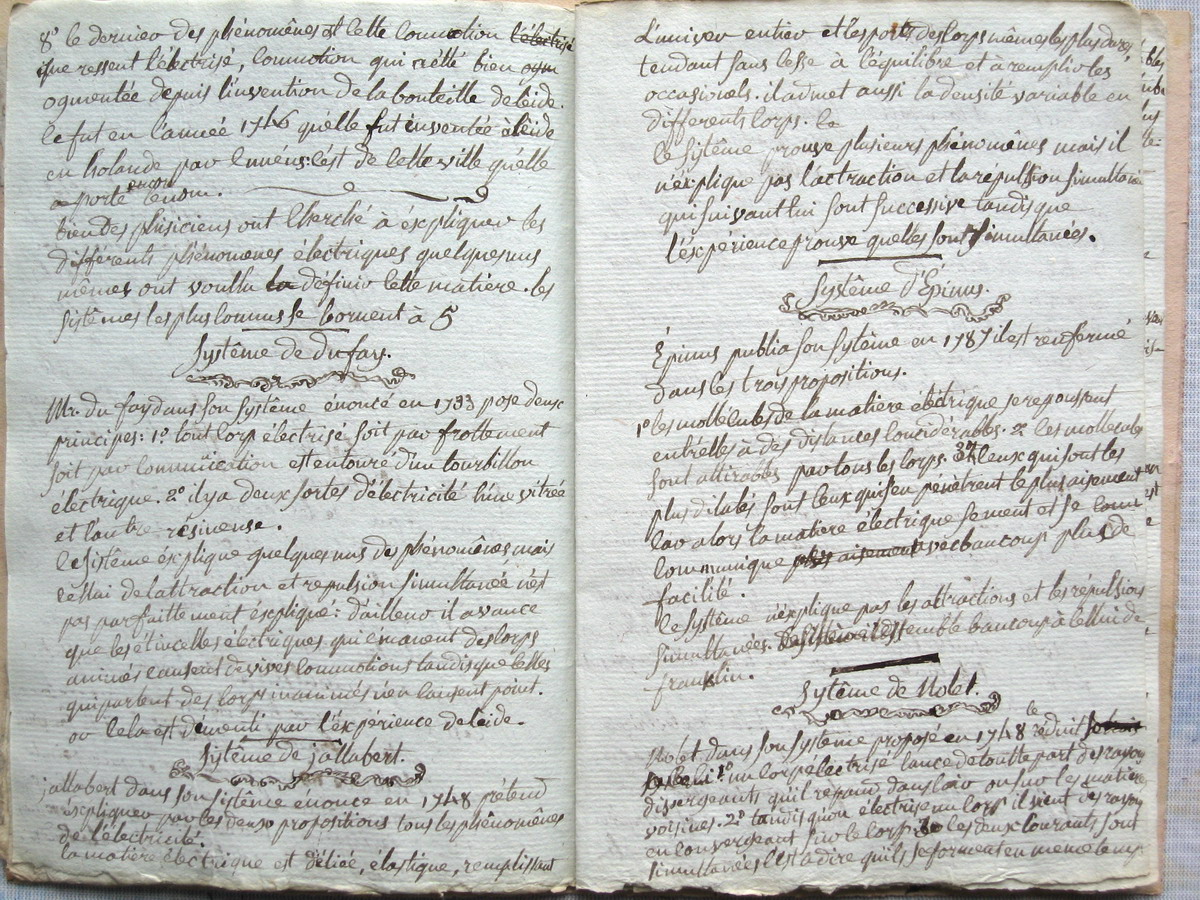 8º le dernier des phénomênes est cette conmotion l'électrisé
que ressent l'électrisé, conmotion qui a été bien ogm
ogmentée depuis l'invention de la bouteille de leide.
ce fut en l'année 1746 quelle fut inventée à leide
en holande par Cunéus: c'est de cette ville qu'elle
a porté encor le nom.
bien des phisiciens ont cherché à éxpliquer les
différents phénomenes électriques quelques uns
mêmes ont voullu la définir cette matière. les
sistêmes les plus connus se bornent à 5
Systême de dufay.
Mr. du fay dans son systême énoncé en 1733 pose deux
principes: 1º tout corp électrisé soit par frottement
soit par communiication est entouré d'un tourbillon
électrique. 2º il y a deux sortes d'électricité l'une vitrée
et l'autre résineuse.
ce sistême éxplique quelques uns des phénomênes mais
cellui de l'attraction et repulsion simultanée n'est
pas parfaittement éxpliqué: d'ailleur il avance
que les étincelles électriques qui emanent des corps
animés causent de vives conmotions tandis que celles
qui partent des corps inanimés n'en causent point.
or cela est dementi par l'éxpérience de leide.
Sistême de jallabert.
jallabert dans son sistême énoncé en 1748 prétend
éxpliquer par les deux propositions tous les phénomênes
de l'électricité.
la matière électrique est déliée, élastique, remplissant
L'univer entier et les pores des corps mêmes les plus durs,
tendant sans cesse à l'équilibre et a remplir les
occasionels. il admet aussi la densité variable en
differents corps. ce
ce sistême prouve plusieurs phénomênes mais il
n'éxplique pas l'actraction et la répulsion simultanée
qui suivant lui sont successive tandis que
l'éxpérience prouve quelles sont simultanées.
Systême d'Épinus.
Épinus publia son systême en 1787 il est renfermé
dans les trois propositions.
1º les mollécules de la matière électrique se repoussent
entr'elles à des distances considérables. 2º les mollecules
sont attirables par tous les corps. 3º ceux qui sont les
plus dilatés sont ceux qui s'en penètrent le plus aisement
car alors la matière électrique se meut et se com
communique plus aisement avec beaucoup plus de
facilité.
ce systême n'éxplique pas les attractions et les répulsions
simultanées. ressemble beaucoup à cellui de
franklin.
Sytême de Nolet.
Nolet dans son systême proposé en 1748 le réduit
1º un corp électrisé lance de toutte part des rayons
divergeants qu'il repand dans l'air ou sur les matières
voisines. 2º tandis qu'on électrise un corp il vient des rayons
en convergeant sur le corp. 3º les deux courants sont
simultanées c'est à dire qu'ils se forment en même tems